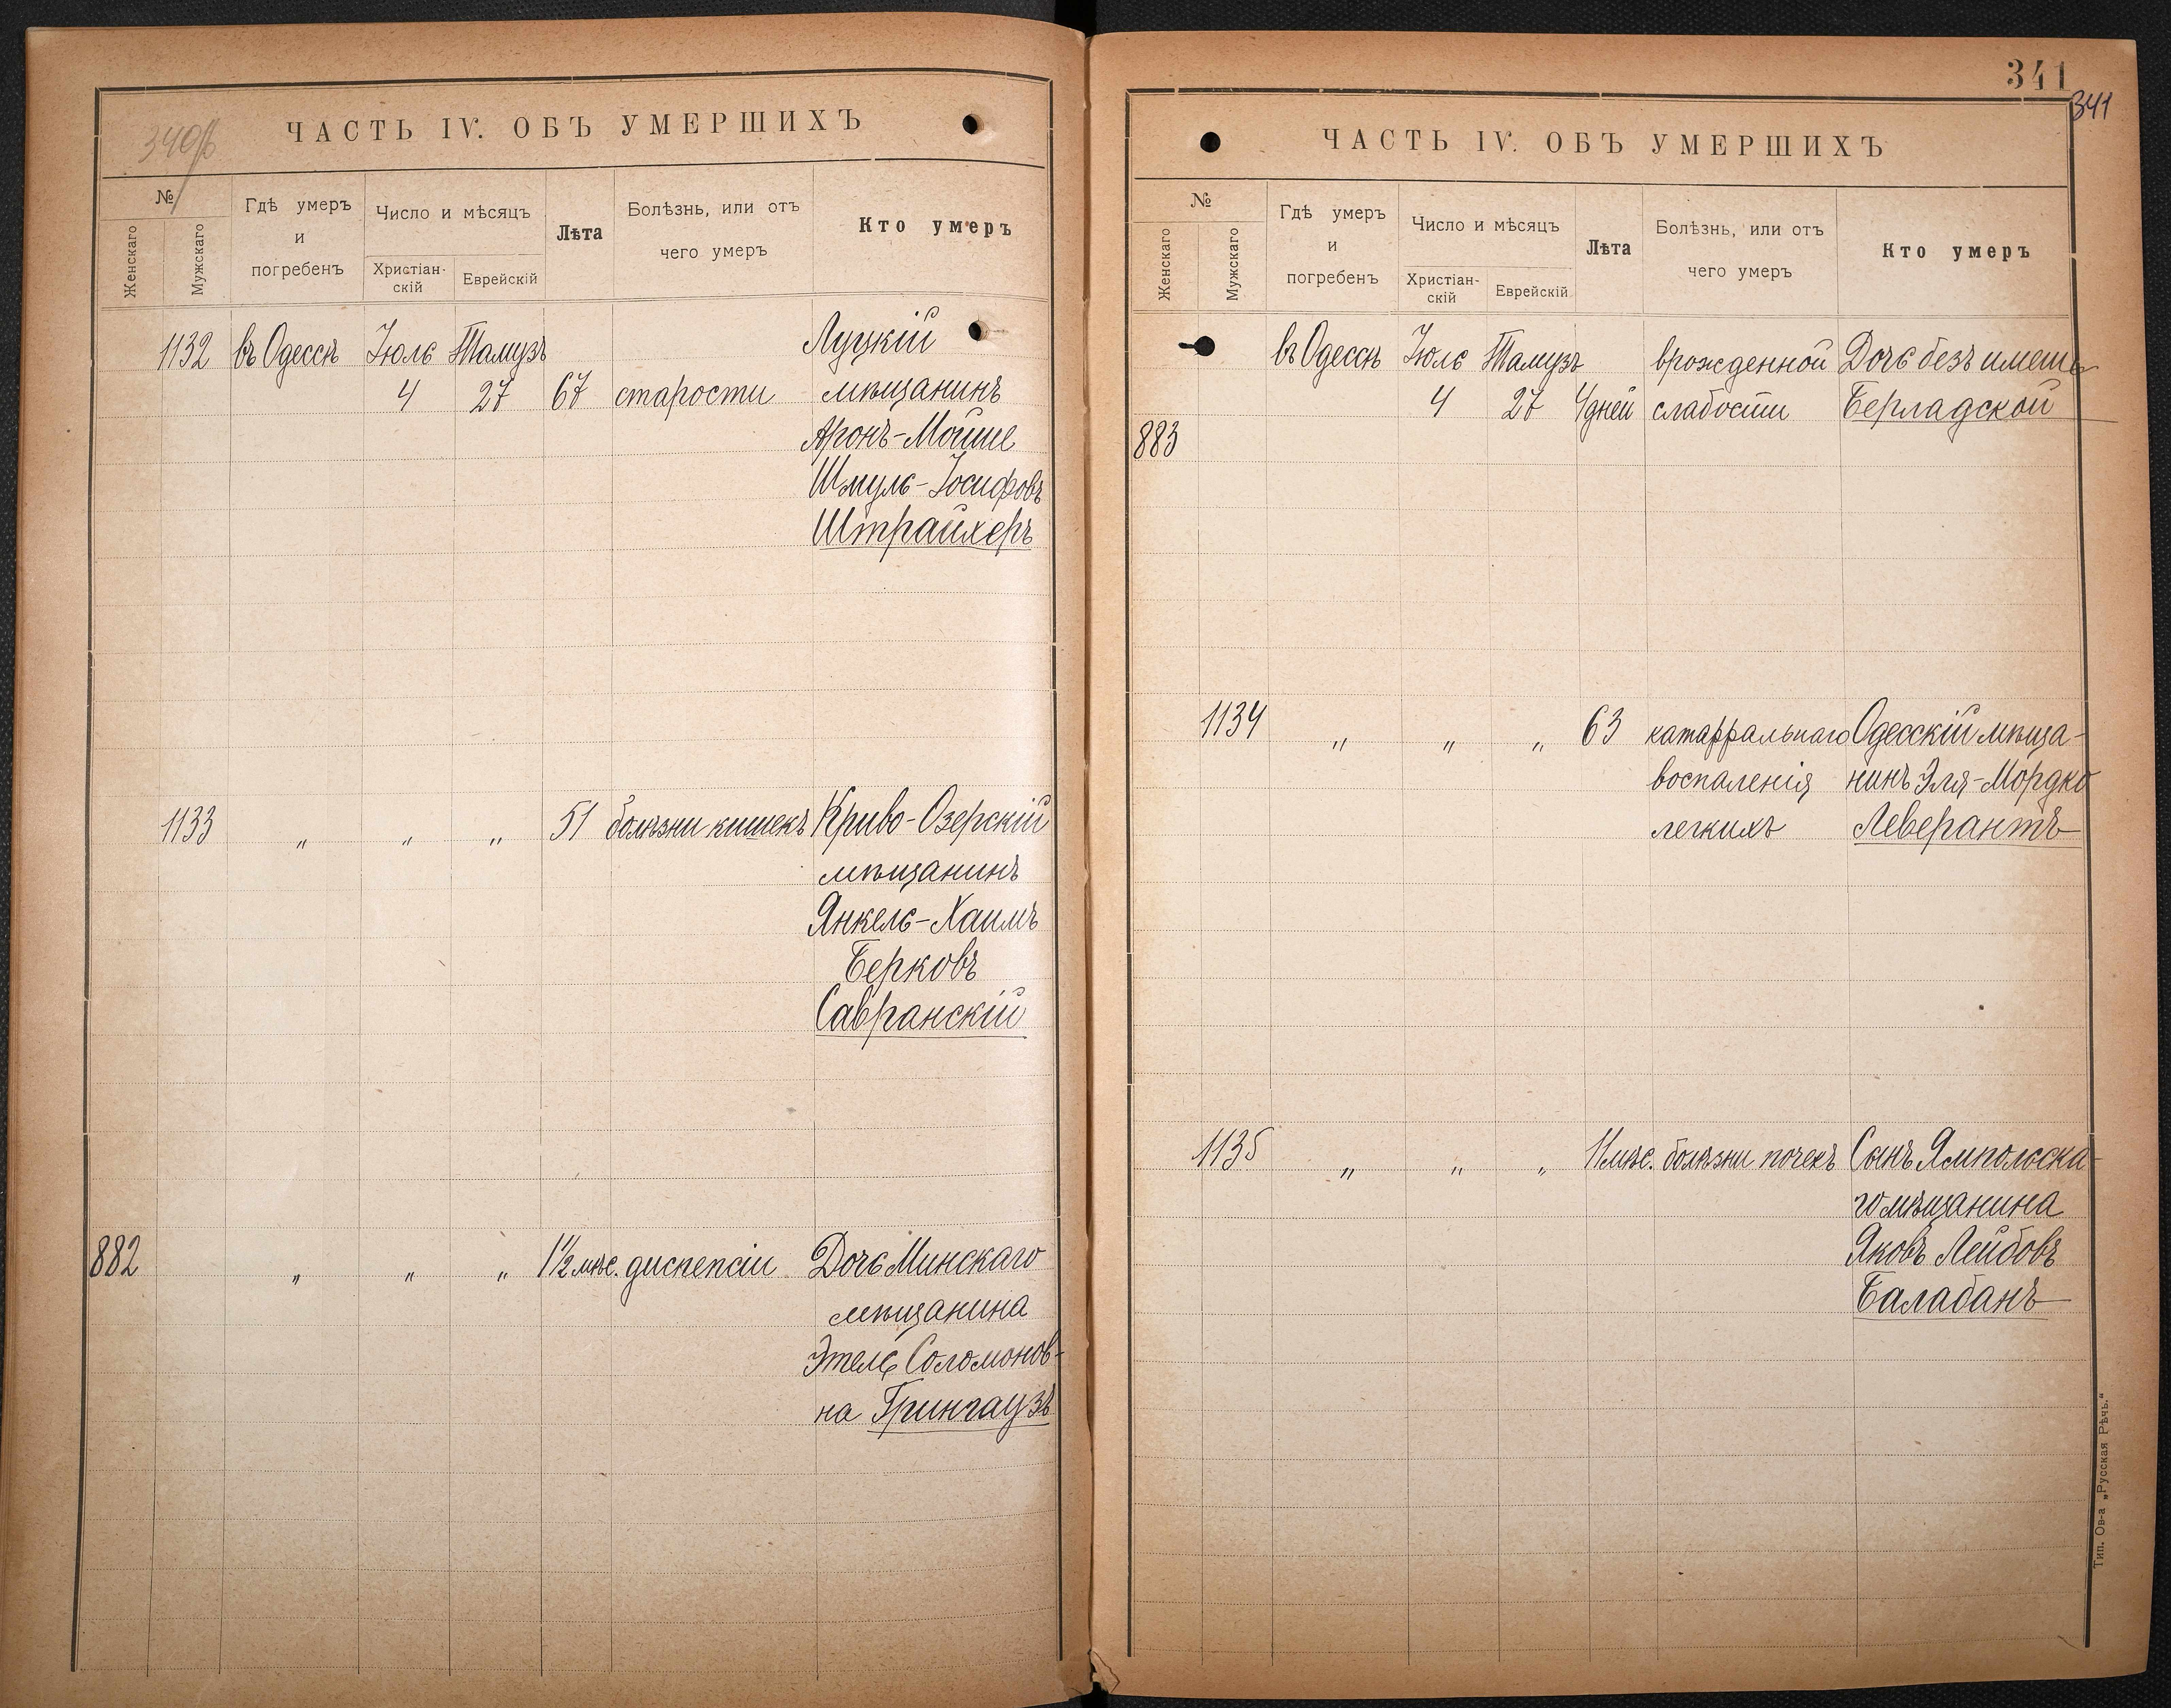 340/б
ЧАСТЬ IV. ОБЪ УМЕРШИХЪ
№
Женскаго
Мужскаго
Гдѣ умеръ
и
погребенъ
Число и мѣсяцъ
Христіан-
скій
Еврейскій
Лѣта
Болѣзнь, или отъ
чего умеръ
Кто умеръ
1132 въ Одессѣ Іюль Тамузъ Луцкій
4 27 67 старости мѣщанинъ
Аронъ-Мойше
Шмуль-Іосифовъ
Штрайхеръ
1133 „ „ „ 51 болѣзни кишекъ Криво-Озерскій
мѣщанинъ
Янкель-Хаимъ
Берковъ
Савранскій
882 „ „ „ 1½ мѣс. диспепсіи Дочь Минскаго
мѣщанина
Этель Соломонов-
на Грингаузъ
341
341
ЧАСТЬ IV. ОБЪ УМЕРШИХЪ
№
Женскаго
Мужскаго
Гдѣ умеръ
и
погребенъ
Число и мѣсяцъ
Христіан-
скій
Еврейскій
Лѣта
Болѣзнь, или отъ
чего умеръ
Кто умеръ
въ Одессѣ Іюль Тамузъ врожденной Дочь безъ имени
4 27 4 дней слабости Берладской
883
1134 „ „ „ 63 катарральнаго Одесскій мѣща-
воспаленія нинъ Эля-Мордко
легкихъ Леверантъ
1135 „ „ „ 11 мѣс. болѣзни почекъ Сынъ Ямпольска-
го мѣщанина
Яковъ Лейбовъ
Балабанъ
Тип. Ов-а „Русская Рѣчь.“